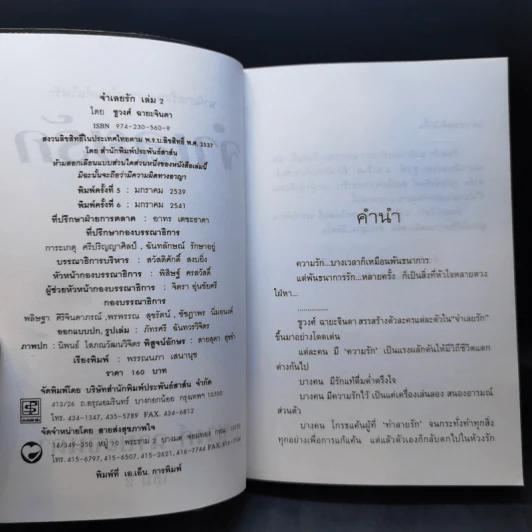 จำเลยรัก เล่ม 2
โดย ชูวงศ์ ฉายะจินดา
ISBN 974-230-560-9
สงวนลิขสิทธิ์ในประเทศไทยตาม พ.ร.บ.ลิขสิทธิ์ พ.ศ. 2537
โดย สำนักพิมพ์ประพันธ์สาส์น
ห้ามลอกเลียนแบบส่วนใดส่วนหนึ่งของหนังสือเล่มนี้
มิฉะนั้นจะถือว่ามีความผิดทางอาญา
พิมพ์ครั้งที่ 5 : มกราคม 2539
พิมพ์ครั้งที่ 6 : มกราคม 2541
ที่ปรึกษาฝ่ายการตลาด : อาทร เตชะธาดา
ที่ปรึกษากองบรรณาธิการ
การะเกตุ ศรีปริญญาศิลป์, ฉันทลักษณ์ รักษาอยู่
บรรณาธิการบริหาร : สวัสดิศักดิ์ สงบยิ่ง
หัวหน้ากองบรรณาธิการ : พิสิษฐ์ ศรสวัสดิ์
ผู้ช่วยหัวหน้ากองบรรณาธิการ : จิตรา อุ่นชัยศรี
กองบรรณาธิการ
พลิษฐา ศิริจินดาภรณ์, พรพรรณ สุขรัตน์, ชัชฎาพร นิ่มอนงค์
ออกแบบปก, รูปเล่ม : ภัทรศรี ฉันทวรวิจิตร
ภาพปก : นิพนธ์ โสภณวัฒนวิจิตร พิสูจน์อักษร : สายสุดา สุขขำ
เรียงพิมพ์ : พรรณนภา เสนานุช
ราคา 160 บาท
จัดพิมพ์โดย บริษัทสำนักพิมพ์ประพันธ์สาส์น จำกัด
413/26 ถ.อรุณอมรินทร์ บางกอกน้อย กรุงเทพฯ 10700
โทร. 434-1347, 435-5789 FAX. 434-6812
จัดจำหน่ายโดย สายส่งสุขภาพใจ
14/349-350 หมู่ 10 พระราม 2 บางมด จอมทอง กทม.
โทร. 415-6797, 415-6507, 415-2621, 416-7744 FAX.
พิมพ์ที่ เอ.เอ็น. การพิมพ์
คำนำ
ความรัก..บางเวลาก็เหมือนพันธนาการ
แต่พันธนาการรัก...หลายครั้ง ก็เป็นสิ่งที่หัวใจหลายดวง
ใฝ่หา...
...............
ชูวงศ์ ฉายะจินดา สรรสร้างตัวละครแต่ละตัวใน"จำเลยรัก"
ขึ้นมาอย่างโดดเด่น
แต่ละคน มี 'ความรัก' เป็นแรงผลักดันให้มีวิถีชีวิตแตก
ต่างกันไป
บางคน มีรักแท้ดื่มด่ำตรึงใจ
บางคน มีความรักไว้ เป็นแค่เครื่องเล่นลอง สนองอารมณ์
ส่วนตัว
บางคน โกรธแค้นผู้ที่ 'ทำลายรัก' จนกระทั่งทำทุกสิ่ง
ทุกอย่างเพื่อการแก้แค้น แต่แล้วตัวเองก็กลับตกไปในห้วงรัก